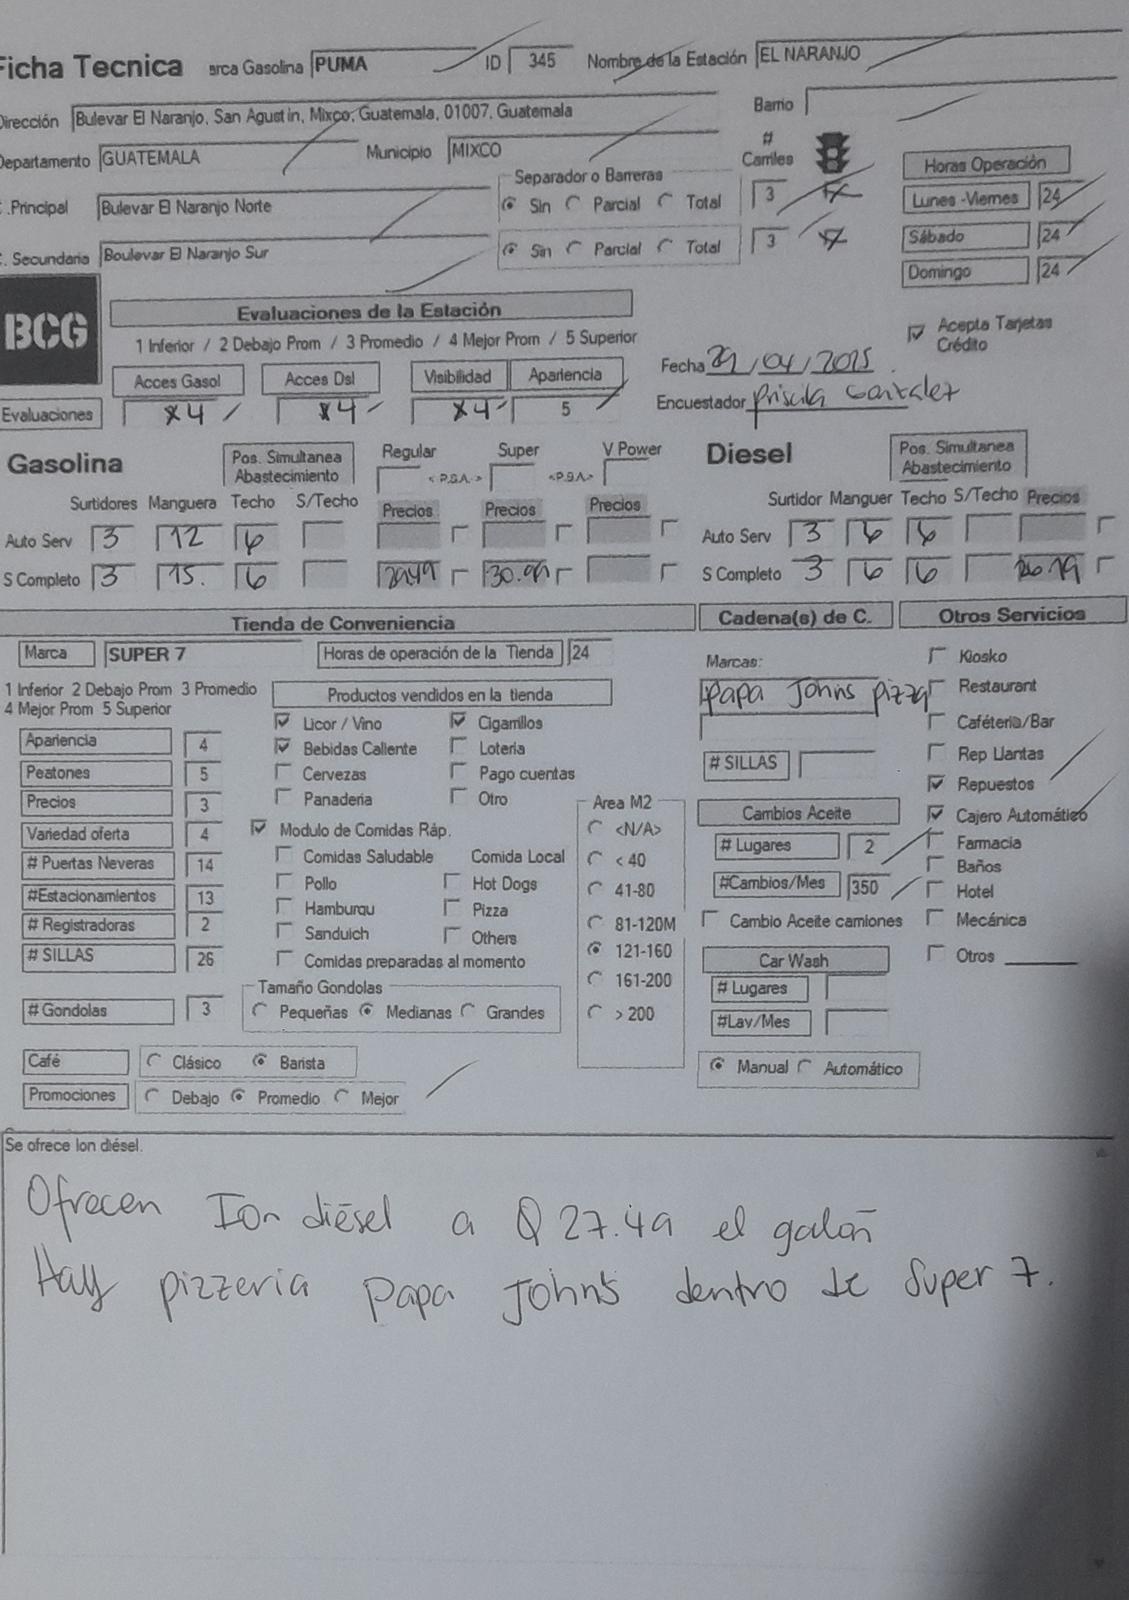 Ficha Tecnica arca Gasolina PUMA ID 345 Nombre de la Estación EL NARANJO
Dirección Bulevar El Naranjo, San Agustin, Mixco, Guatemala, 01007, Guatemala Barrio
Departamento GUATEMALA Municipio MIXCO # Carriles Horas Operación
Separador o Barreras
C.Principal Bulevar El Naranjo Norte Sin Parcial Total 3 Lunes -Viernes 24
C. Secundaria Boulevar El Naranjo Sur Sin Parcial Total 3 Sábado 24
Domingo 24
BCG Evaluaciones de la Estación
1 Inferior / 2 Debajo Prom / 3 Promedio / 4 Mejor Prom / 5 Superior Acepta Tarjetas Crédito
Acces Gasol Acces Dsl Visibilidad Apariencia Fecha 29/04/2025
Evaluaciones 4 4 4 5 Encuestador Priscila Gonzalez
Gasolina Pos. Simultanea Abastecimiento Regular <P.S.A.> Super <P.S.A> V Power Diesel Pos. Simultanea Abastecimiento
Surtidores Manguera Techo S/Techo Precios Precios Precios Surtidor Manguer Techo S/Techo Precios
Auto Serv 3 12 6 Auto Serv 3 6 6
S Completo 3 15. 6 29.49 30.99 S Completo 3 6 6 26.19
Tienda de Conveniencia Cadena(s) de C. Otros Servicios
Marca SUPER 7 Horas de operación de la Tienda 24 Marcas: Kiosko
1 Inferior 2 Debajo Prom 3 Promedio Productos vendidos en la tienda Papa Johns pizza Restaurant
4 Mejor Prom 5 Superior Licor / Vino Cigarrillos Caféteria/Bar
Apariencia 4 Bebidas Caliente Loteria Rep Llantas
Peatones 5 Cervezas Pago cuentas # SILLAS Repuestos
Precios 3 Panaderia Otro Area M2 Cambios Aceite Cajero Automático
Variedad oferta 4 Modulo de Comidas Ráp. <N/A> # Lugares 2 Farmacia
# Puertas Neveras 14 Comidas Saludable Comida Local < 40 Baños
#Estacionamientos 13 Pollo Hot Dogs 41-80 #Cambios/Mes 350 Hotel
# Registradoras 2 Hamburqu Pizza 81-120M Cambio Aceite camiones Mecánica
# SILLAS 26 Sanduich Others 121-160 Car Wash Otros
Comidas preparadas al momento 161-200 # Lugares
Tamaño Gondolas
# Gondolas 3 Pequeñas Medianas Grandes > 200 #Lav/Mes
Café Clásico Barista Manual Automático
Promociones Debajo Promedio Mejor
Se ofrece Ion diésel.
Ofrecen Ion diésel a Q 27.49 el galón
Hay pizzeria Papa Johns dentro de Super 7.